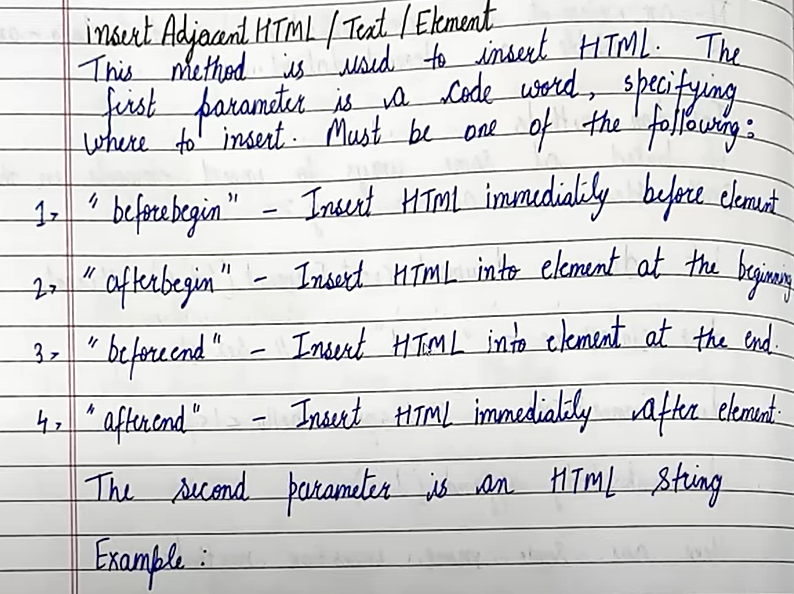 insert Adjacent HTML / Text / Element
This method is used to insert HTML. The
first parameter is a code word, specifying
where to insert. Must be one of the following:
1, "beforebegin" - Insert HTML immediatily before element
2, "afterbegin" - Insert HTML into element at the beginning
3, "beforeend" - Insert HTML into element at the end.
4, "afterend" - Insert HTML immediatily after element.
The second parameter is an HTML string
Example :